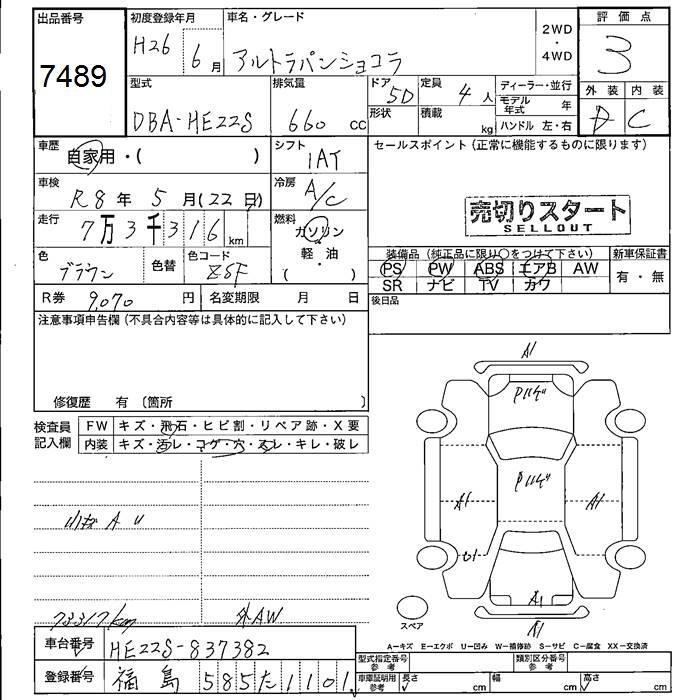 出品番号
7489
初度登録年月
H26 6月
車名・グレード
アルトラパンショコラ
2WD
・
4WD
評価点
3
型式
DBA-HE22S
排気量
660 cc
ドア
5D
形状
定員
4 人
積載
kg
ディーラー・並行
モデル年式 年
ハンドル 左・右
外装 内装
D C
車歴
自家用・( )
シフト
1AT
車検
R8年 5月(22日)
冷房
A/C
走行
7万3千316 km
燃料
ガソリン
・
軽油
・
( )
色
ブラウン
色替
色コード
ZSF
R券 9,070 円
名変期限 月 日
セールスポイント(正常に機能するものに限ります)
売切りスタート
SELLOUT
装備品(純正品に限り○をつけて下さい)
PS PW ABS エアB AW
SR ナビ TV カワ
新車保証書
有・無
後日品
注意事項申告欄(不具合内容等は具体的に記入して下さい)
修復歴 有(箇所 )
検査員
記入欄
FW キズ・飛石・ヒビ割・リペア跡・X要
内装 キズ・汚レ・コゲ・穴・スレ・キレ・破レ
73317km
外AW
A1
A1
A1
A1
A1
スペア
A-キズ E-エクボ U-凹み W-補修跡 S-サビ C-腐食 XX-交換済
車台番号 HE22S-837382
登録番号 福島 585た1101
型式指定番号
参考
類別区分番号
参考
車庫証明用
参考
長さ cm
幅 cm
高さ cm